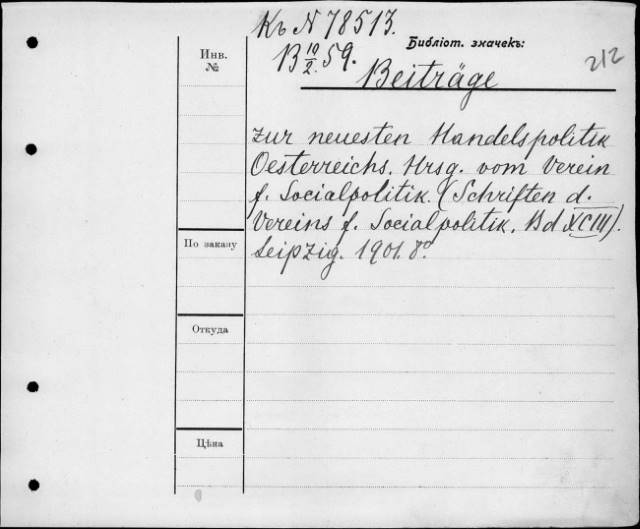 Къ N 78513.
Библіот. значекъ:
B 10/2. 59.
212
Инв. №
Beiträge
zur neuesten Handelspolitik
Oesterreichs. Hrsg. vom Verein
f. Socialpolitik. (Schriften d.
Vereins f. Socialpolitik. Bd XCIII).
Leipzig. 1901. 8°.
По заказу
Откуда
Цѣна